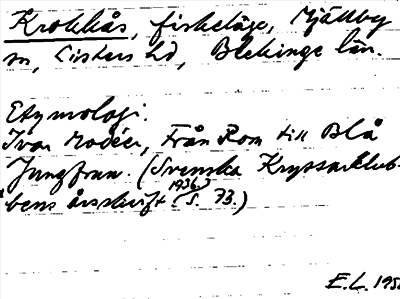 Krokås, fiskeläge, Mjällby
sn, Listers hd, Blekinge län.
Etymologi.
Ivar Modéer, Från Rom till Blå
Jungfrun. (Svenska Kryssarklub-
bens årsskrift 1936 s. 73.)
E.L. 195